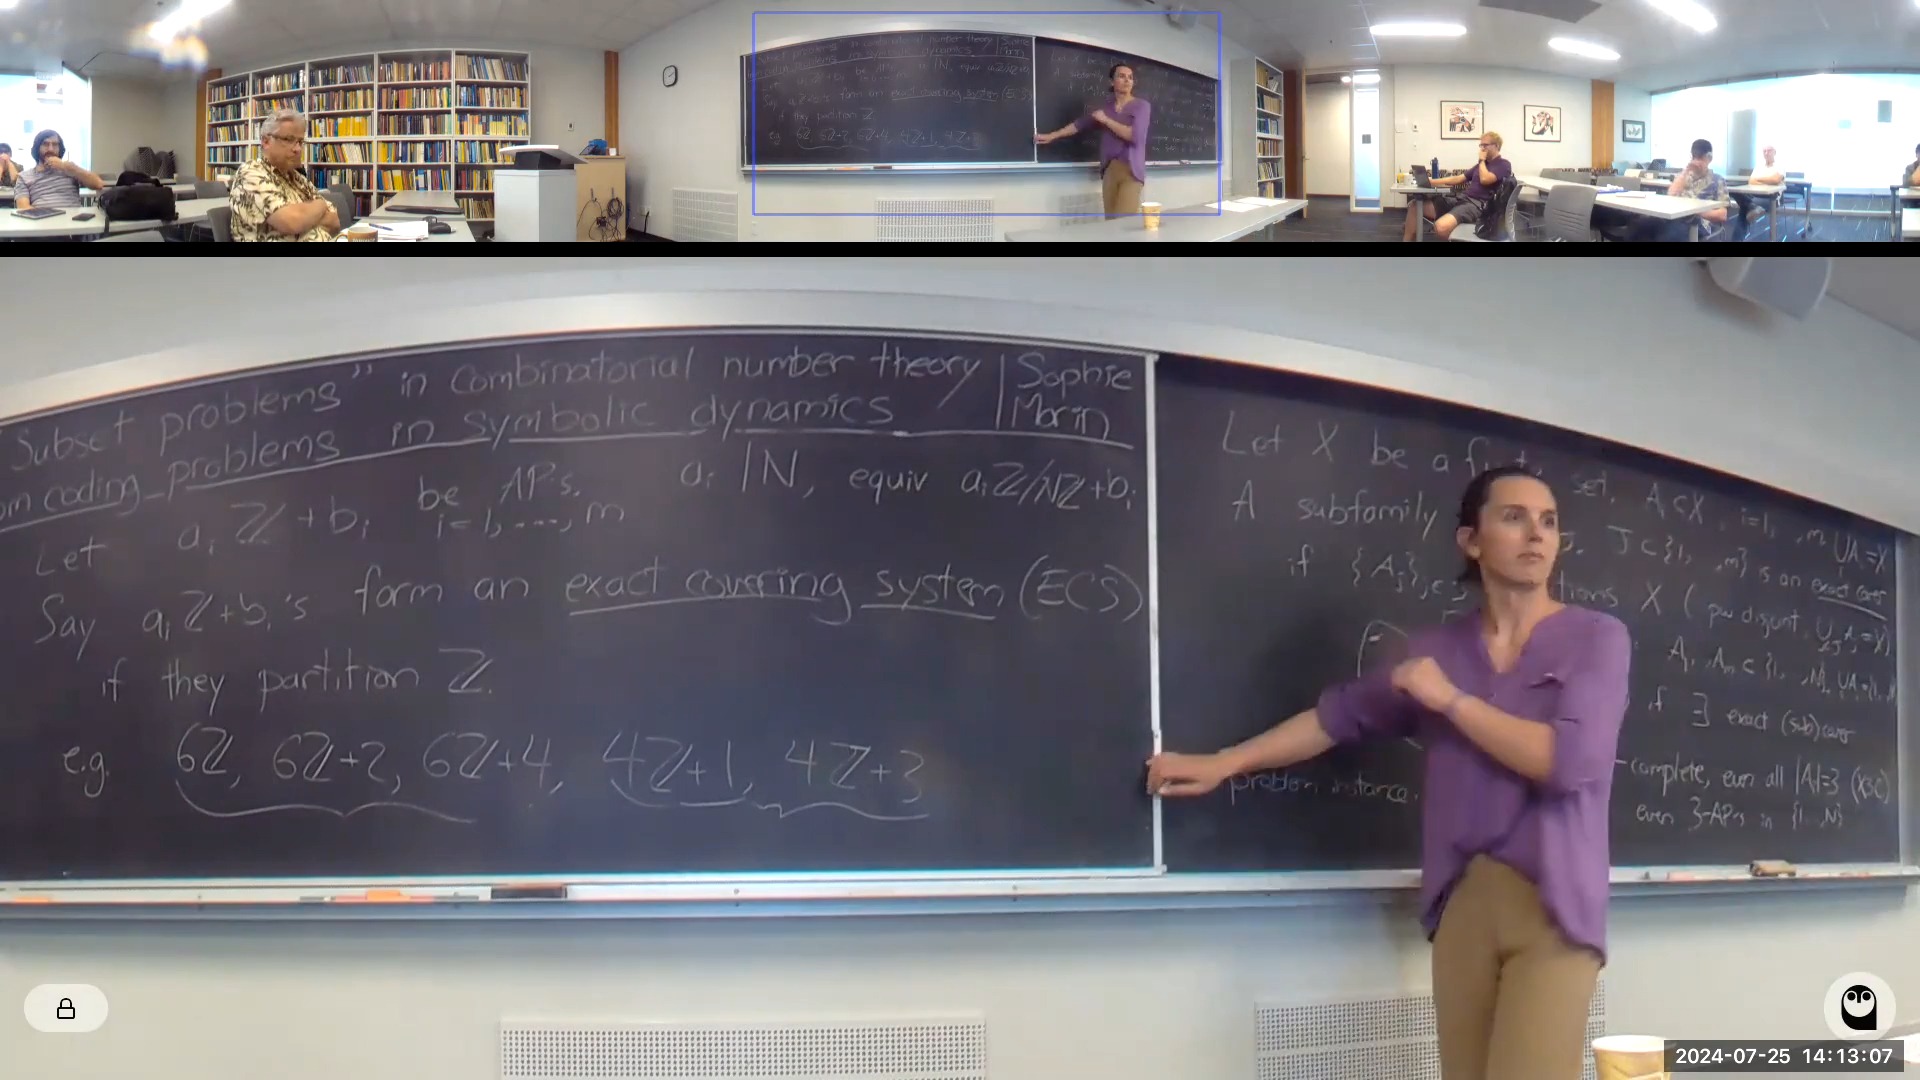 "Subset problems" in Combinatorial number theory | Sophie
om coding problems in symbolic dynamics | Morin
Let a_i ℤ + b_i be AP's. i=1, ..., m a_i | N, equiv a_i ℤ/Nℤ + b_i
Say a_i ℤ + b_i's form an exact covering system (ECS)
if they partition ℤ.
e.g. 6ℤ, 6ℤ+2, 6ℤ+4, 4ℤ+1, 4ℤ+3
Let X be a finite set, A_i ⊂ X, i=1, m ∪A_i = X
A subfamily J ⊂ {1, m} is an exact cover
if {A_j} X (pw disjoint, ∪ A_j = X)
A_1, A_m ⊂ {1, N}, ∪A_i = {1, N
if ∃ exact (sub)cover
problem instance.
-complete, even all |A_i|=3 (X3C)
even 3-AP's in {1..N}
2024-07-25 14:13:07